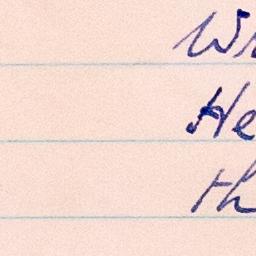 Wi
He
th